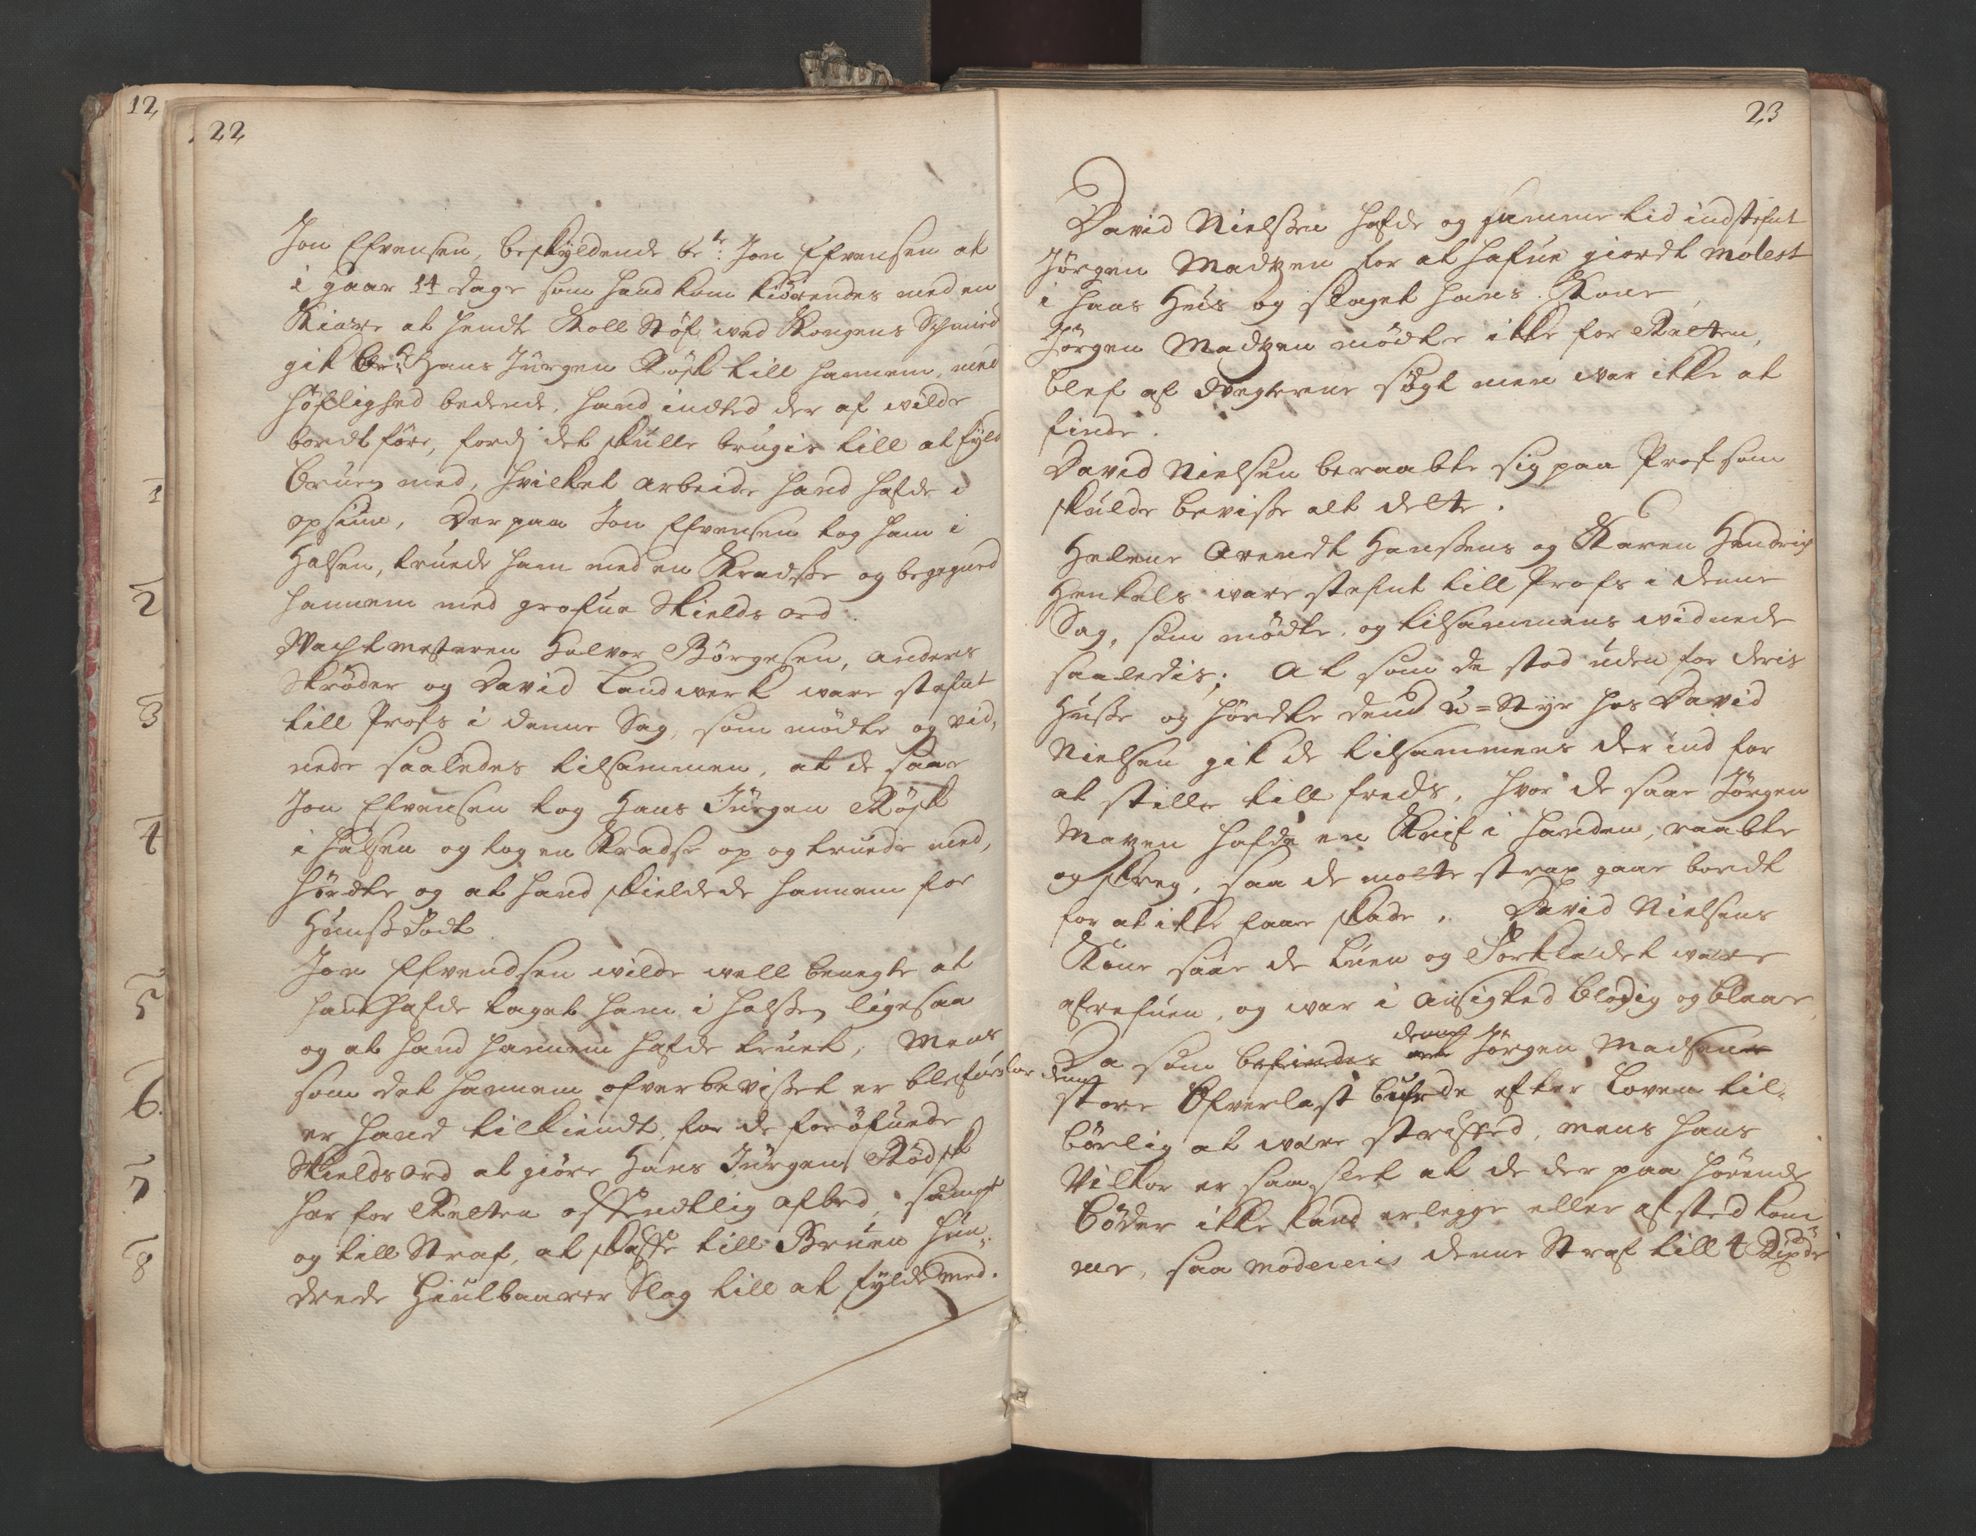 12
22
Jon Efvensen, beskyldende be.te Jon Efvensen at
i gaar 14 dage som hand kom kiörendes med en
Kiære at hendte Koll Støf ved Kongens Schmied
gik be.te Hans Jürgen Rösk till hannem, med
höflighed bedende, hand indted der af wilde
bordt före, fordj det skulle brugis till at fyld
Bruen med, hvilket arbeide hand hafde i
opsiun, Derpaa Jon Efvensen tog ham i
Halsen, truede ham med en Kradsse og begegned
hannem med grofue Skields ord.
Wachtmesteren Halvor Börgesen, Anders
Skröder og David Landwerk ware stefnt
till Profs i denne Sag, som mödte og vid,
nede saaledes tilsammen, at de saae
Jon Efvensen tog Hans Jürgen Rösk
i halsen og tog en Kradse op og truede med,
hördte og at hand skieldede hannem for
Hunss
Jon Efvendsen wilde well benegte at
hand hafde taget ham i halssen ligesaa
og at hand hannem hafde truet, Mens
som det hannem ofverbevisset er
er hand tilkiendt, for de forøfuede
Skieldsord at giöre Hans Jürgen Rödsk
her for Retten offendtlig afbed, sampt
og till Straf, at skaffe till Bruen Hun,
drede Hiulbaarer Slag till at fylde med.
1
2
3
4
5
6.
7
8
23
David Nielssen hafde og samme tid indstefnt
Jörgen Madzen for at hafue giordt molest
i hans Hus og slaget hans Kone,
Jörgen Madzen mödte ikke for Retten,
blef af Vegterne søgt men war ikke at
finde.
David Nielsen beraabte sig paa Prof som
skulde bevisse alt dette.
Helene Arendt Hanssens og Karen Hendrich
Henkels ware stefnt till Profs i denne
Sag, som mödte, og tilsammens widnede
saaledis; At som de stod uden for deris
Husse og hördte dend u=Styr hos David
Nielsen gik de tilsammens der ind for
at stille till freds, hvor de saae Jörgen
Mazen hafde en Knif i handen, raabte
og skreg, saa de motte strax gaae bordt
for at ikke faae skade. David Nielsens
Kone saae de Luen og Forklædet ware
afrefuen, og war i Ansigted blodig og blaae,
Da som befindes Jörgen Madsen
dend
store Ofverlast burde efter Loven til,
börlig at være straffed, mens hans
Vilkor er saa slet at de der paa hörende
böder ikke kand erlegge eller afsted kom,
me, saa modereris denne Straf till 4 Rixdr